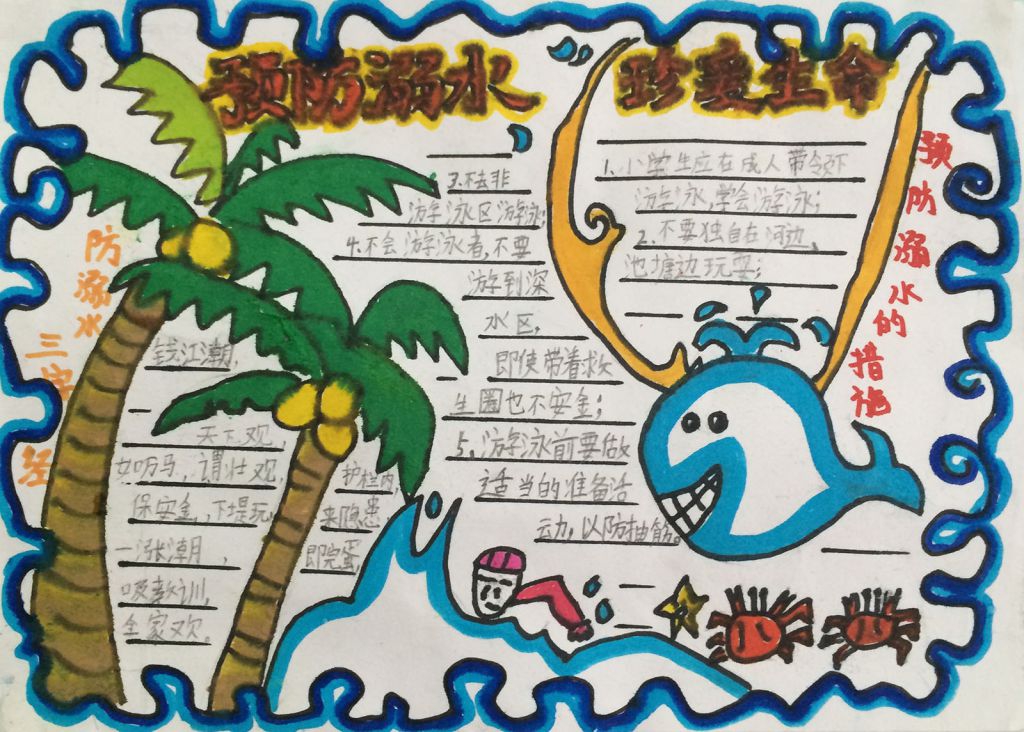 预防溺水
珍爱生命
防溺水
三字
经
钱江潮,
天下观,
如叨马,谓壮观,
保安全,下堤玩,
一涨潮,
吸教训,
全家欢。
护栏内,
来隐患
即完蛋,
预防溺水的措施
1、小学生应在成人带领下
游泳,学会游泳;
2、不要独自在河边、
池塘边玩耍;
3、不去非
游泳区游泳;
4、不会游泳者,不要
游到深
水区,
即使带着救
生圈也不安全;
5、游泳前要做
适当的准备活
动,以防抽筋。